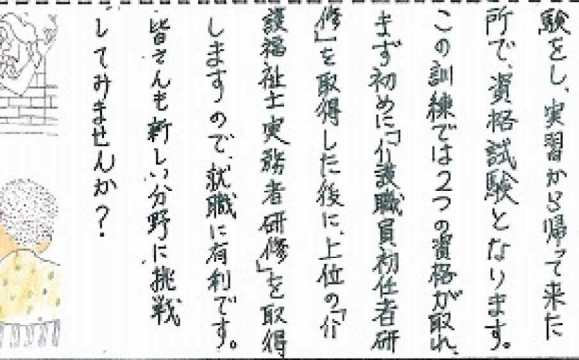 験をし、実習から帰って来た
所で、資格試験となります。
この訓練では2つの資格が取れ、
まず初めに「介護職員初任者研
修」を取得した後に、上位の「介
護福祉士実務者研修」を取得
しますので、就職に有利です。
皆さんも新しい分野に挑戦
してみませんか?